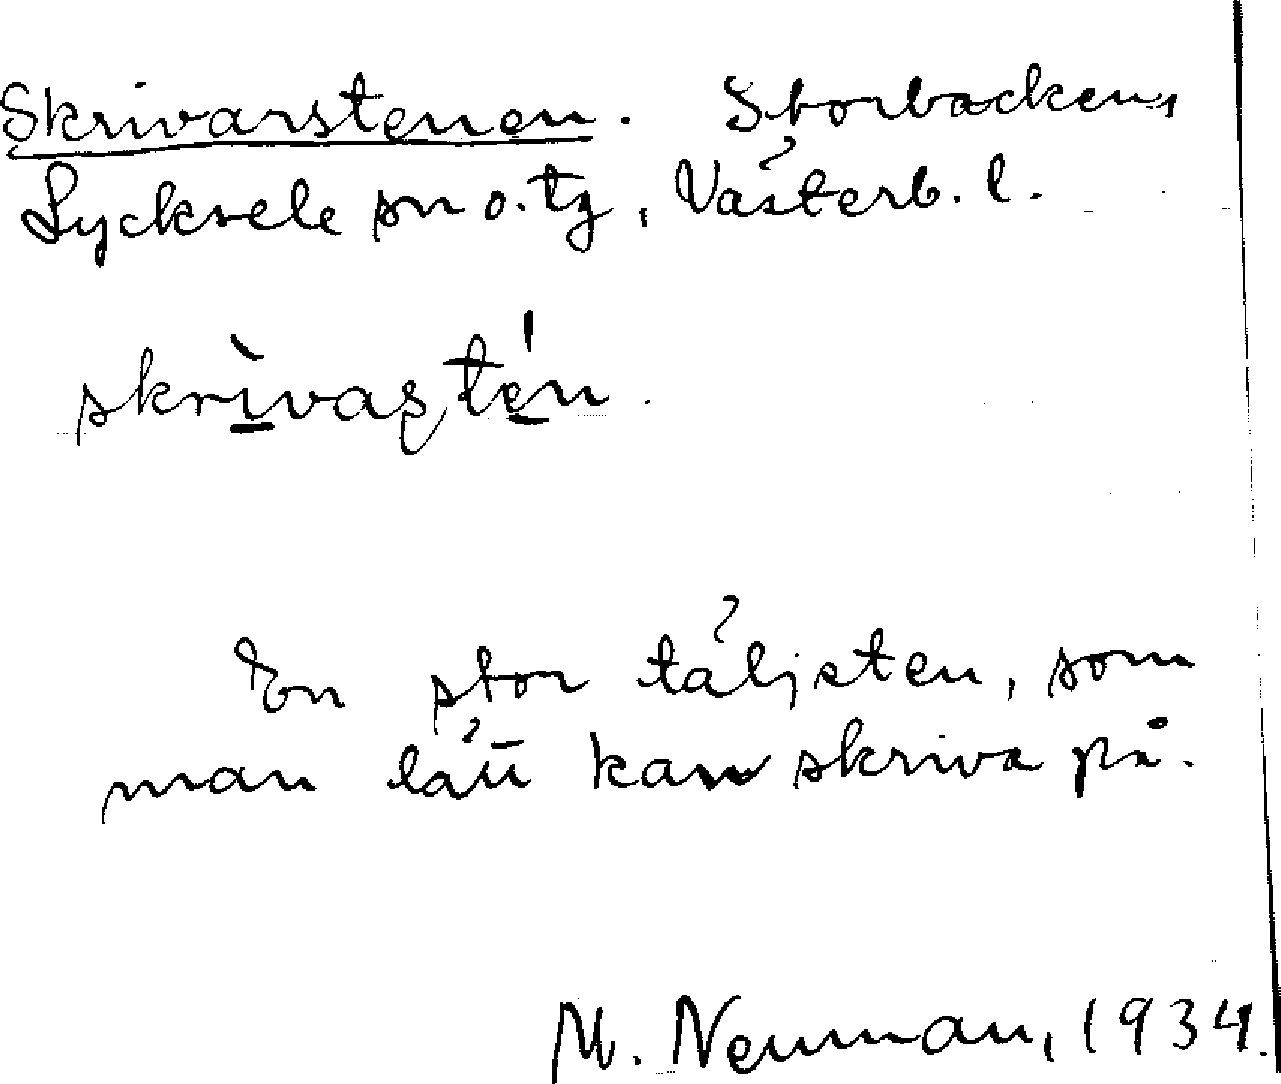 Skrivarstenen. Storbacken,
Lycksele sn o. tg, Västerb. l.
skrìvaʂtén.
En stor täljsten, som
man lätt kan skriva på.
M. Neuman, 1934.